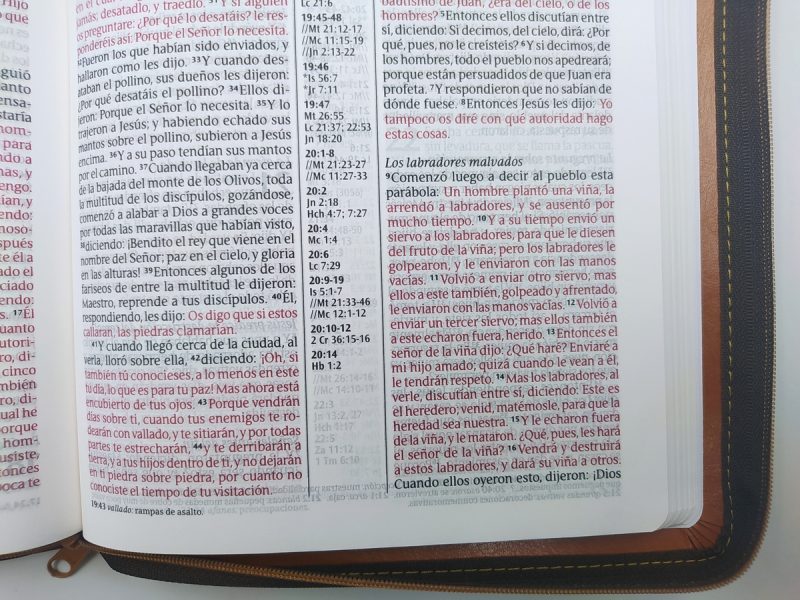 Hijo
guió
nom-
para
noso-
¹⁷Él
cinco
hom-
en el cual
más; desatadlo, y traedlo. ³¹Y si alguien
preguntare: ¿Por qué lo desatáis? le res-
ponderéis así: Porque el Señor lo necesita.
³²Fueron los que habían sido enviados, y
hallaron como les dijo. ³³Y cuando des-
ataban el pollino, sus dueños les dijeron:
¿Por qué desatáis el pollino? ³⁴Ellos di-
jeron: Porque el Señor lo necesita. ³⁵Y lo
trajeron a Jesús; y habiendo echado sus
mantos sobre el pollino, subieron a Jesús
encima. ³⁶Y a su paso tendían sus mantos
por el camino. ³⁷Cuando llegaban ya cerca
de la bajada del monte de los Olivos, toda
la multitud de los discípulos, gozándose,
comenzó a alabar a Dios a grandes voces
por todas las maravillas que habían visto,
³⁸diciendo: ¡Bendito el rey que viene en el
nombre del Señor; paz en el cielo, y gloria
en las alturas! ³⁹Entonces algunos de los
fariseos de entre la multitud le dijeron:
Maestro, reprende a tus discípulos. ⁴⁰Él,
respondiendo, les dijo: Os digo que si estos
callaran, las piedras clamarían.
⁴¹Y cuando llegó cerca de la ciudad, al
verla, lloró sobre ella, ⁴²diciendo: ¡Oh, si
también tú conocieses, a lo menos en este
tu día, lo que es para tu paz! Mas ahora está
encubierto de tus ojos. ⁴³Porque vendrán
días sobre ti, cuando tus enemigos te ro-
dearán con vallado, y te sitiarán, y por todas
partes te estrecharán, ⁴⁴y te derribarán a
tierra, y a tus hijos dentro de ti, y no dejarán
en ti piedra sobre piedra, por cuanto no
conociste el tiempo de tu visitación.
19:43 vallado: rampas de asalto.
Lc 21:6
19:45-48
//Mt 21:12-17
//Mc 11:15-19
//Jn 2:13-22
19:46
*Is 56:7
*Jr 7:11
19:47
Mt 26:55
Lc 21:37; 22:53
Jn 18:20
20:1-8
//Mt 21:23-27
//Mc 11:27-33
20:2
Jn 2:18
Hch 4:7; 7:27
20:4
Mc 1:4
20:6
Lc 7:29
20:9-19
Is 5:1-7
//Mt 21:33-46
//Mc 12:1-12
20:10-12
2 Cr 36:15-16
20:14
Hb 1:2
bautismo de Juan, ¿era del cielo, o de los
hombres? ⁵Entonces ellos discutían entre
sí, diciendo: Si decimos, del cielo, dirá: ¿Por
qué, pues, no le creísteis? ⁶Y si decimos, de
los hombres, todo el pueblo nos apedreará;
porque están persuadidos de que Juan era
profeta. ⁷Y respondieron que no sabían de
dónde fuese. ⁸Entonces Jesús les dijo: Yo
tampoco os diré con qué autoridad hago
estas cosas.
Los labradores malvados
⁹Comenzó luego a decir al pueblo esta
parábola: Un hombre plantó una viña, la
arrendó a labradores, y se ausentó por
mucho tiempo. ¹⁰Y a su tiempo envió un
siervo a los labradores, para que le diesen
del fruto de la viña; pero los labradores le
golpearon, y le enviaron con las manos
vacías. ¹¹Volvió a enviar otro siervo; mas
ellos a este también, golpeado y afrentado,
le enviaron con las manos vacías. ¹²Volvió a
enviar un tercer siervo; mas ellos también
a este echaron fuera, herido. ¹³Entonces el
señor de la viña dijo: ¿Qué haré? Enviaré a
mi hijo amado; quizá cuando le vean a él,
le tendrán respeto. ¹⁴Mas los labradores, al
verle, discutían entre sí, diciendo: Este es
el heredero; venid, matémosle, para que la
heredad sea nuestra. ¹⁵Y le echaron fuera
de la viña, y le mataron. ¿Qué, pues, les hará
el señor de la viña? ¹⁶Vendrá y destruirá
a estos labradores, y dará su viña a otros.
Cuando ellos oyeron esto, dijeron: ¡Dios